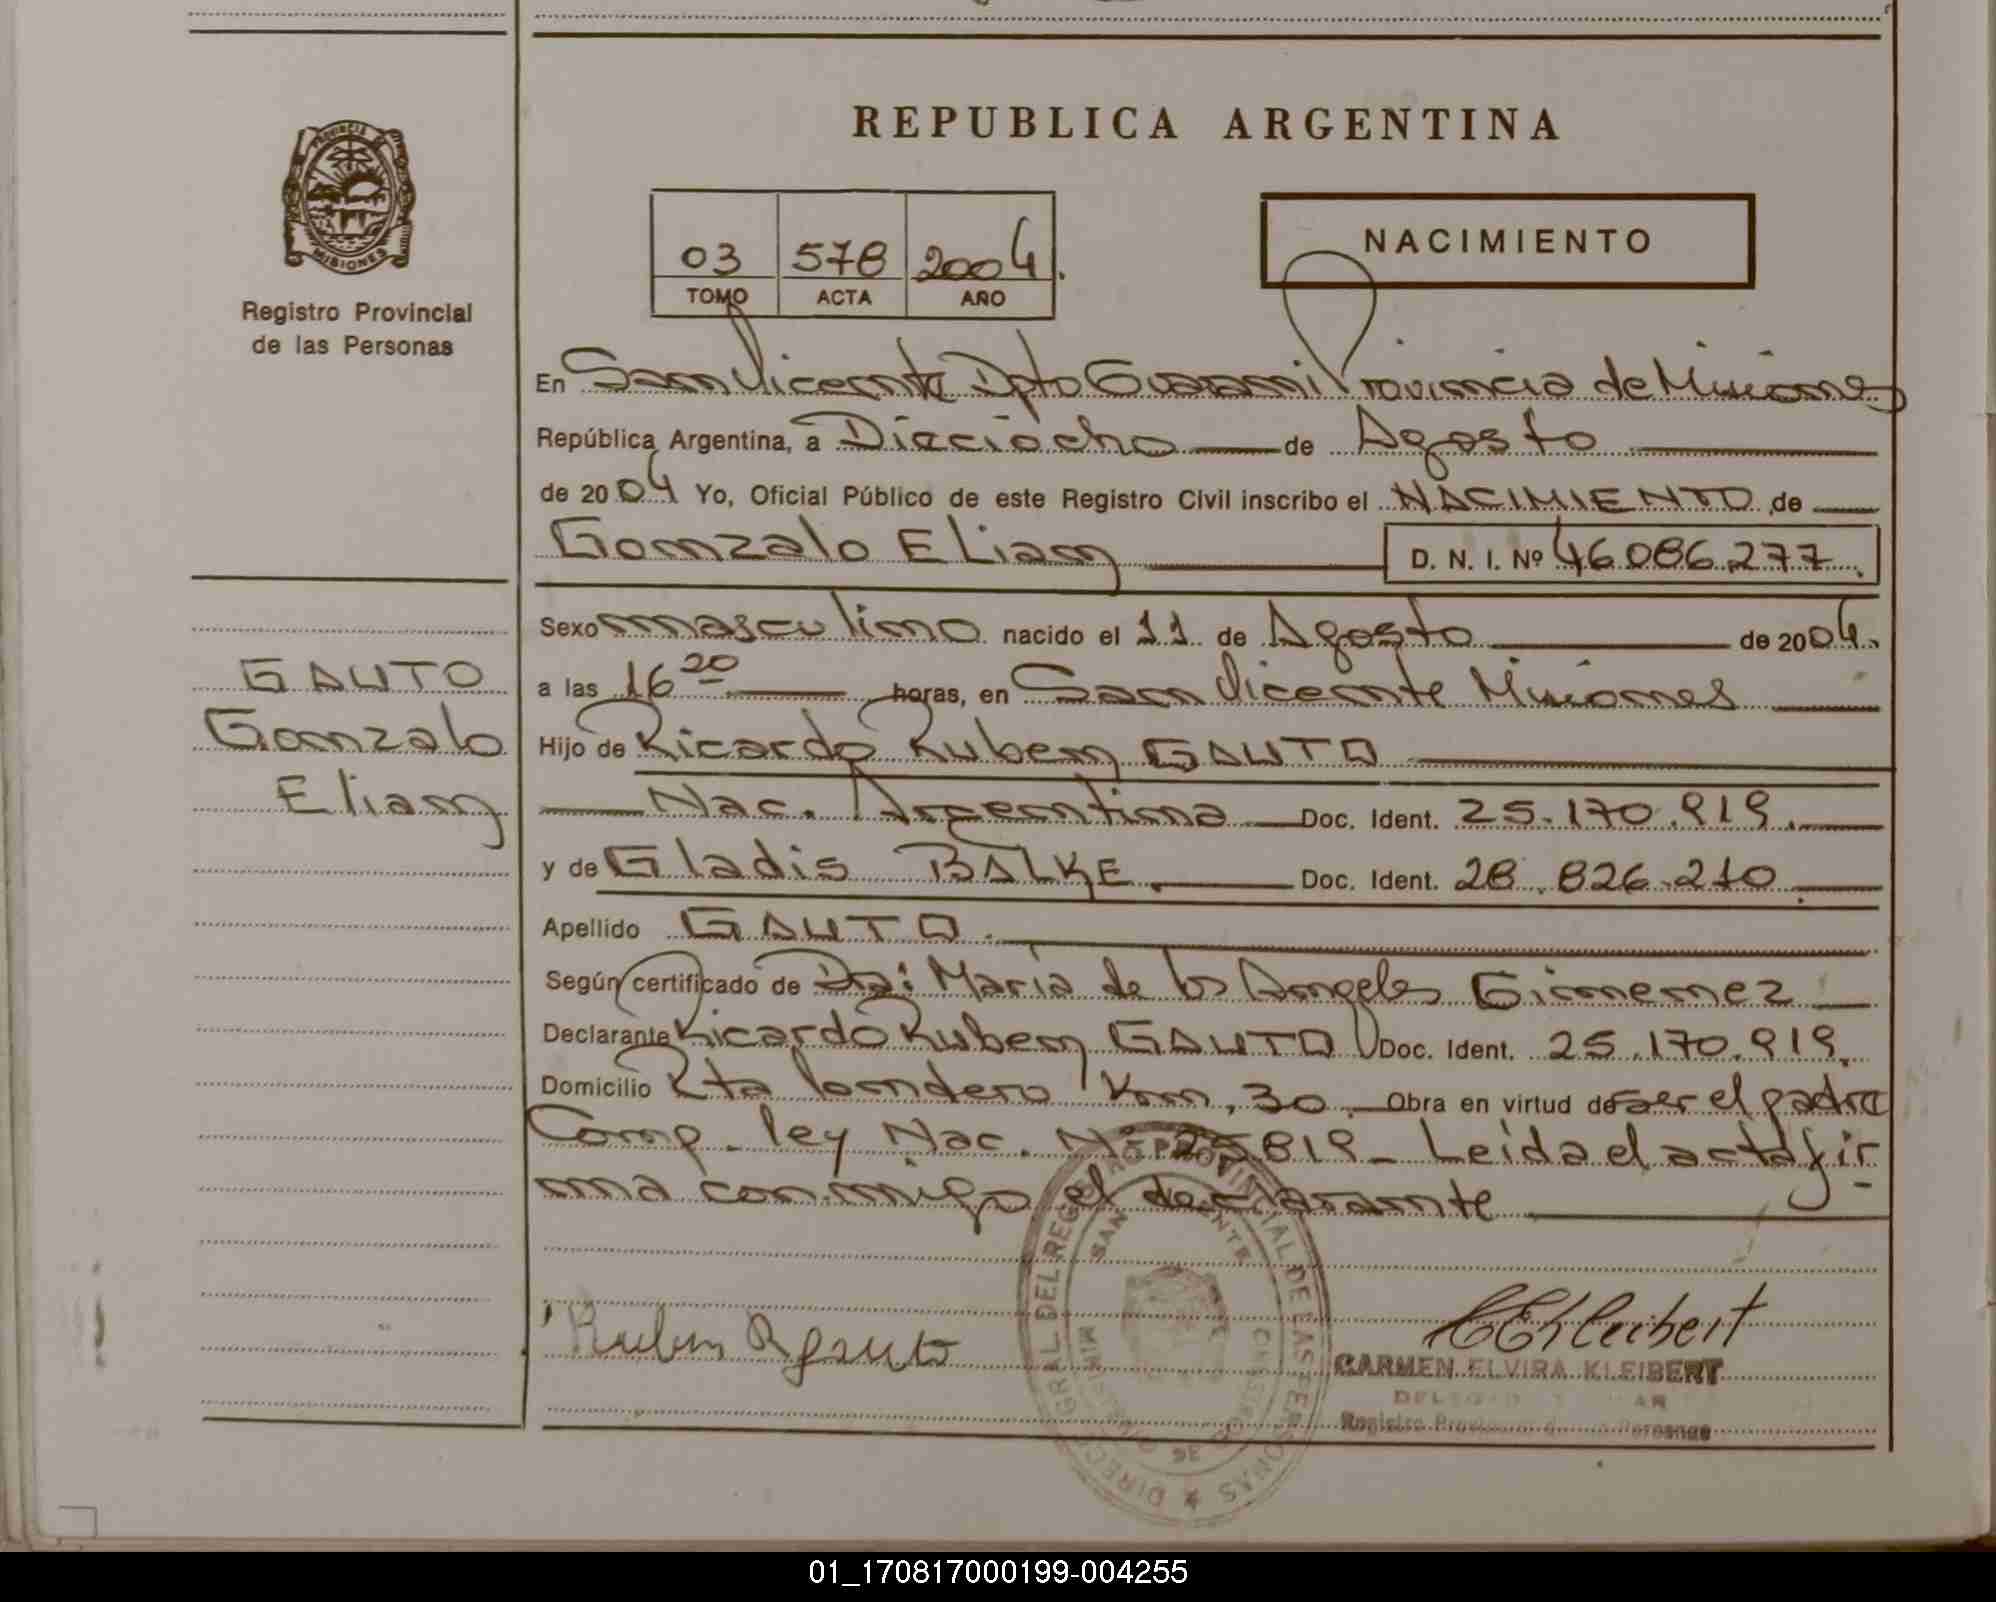 REPUBLICA ARGENTINA
PROVINCIA DE
MISIONES
Registro Provincial
de las Personas
03 578 2004.
TOMO ACTA AÑO
NACIMIENTO
En San Vicente Dpto Guarani Provincia de Misiones
República Argentina, a Dieciocho de Agosto
de 2004 Yo, Oficial Público de este Registro Civil inscribo el NACIMIENTO de
Gonzalo Elian D. N. I. Nº 46.086.277.
Sexo masculino nacido el 11 de Agosto de 2004.
a las 16 20 horas, en San Vicente Misiones
Hijo de Ricardo Ruben GAUTO
Nac. Argentina Doc. Ident. 25.170.919.
y de Gladis BALKE. Doc. Ident. 28.826.210.
Apellido GAUTO.
Según certificado de Dra: María de los Angeles Gimenez
Declarante Ricardo Ruben GAUTO Doc. Ident. 25.170.919.
Domicilio Rta londero Km, 30. Obra en virtud de ser el padre
Comp. ley Nac. Nº 25.819 - Leída el acta fir
ma conmigo el declarante
GAUTO
Gonzalo
Elian
Ruben R gauto
CEKleibert
CARMEN ELVIRA KLEIBERT
Registro Provincial Personas
DIRECC GRAL DEL REGISTRO PROVINCIAL DE LAS PERSONAS
SAN VICENTE
01_170817000199-004255